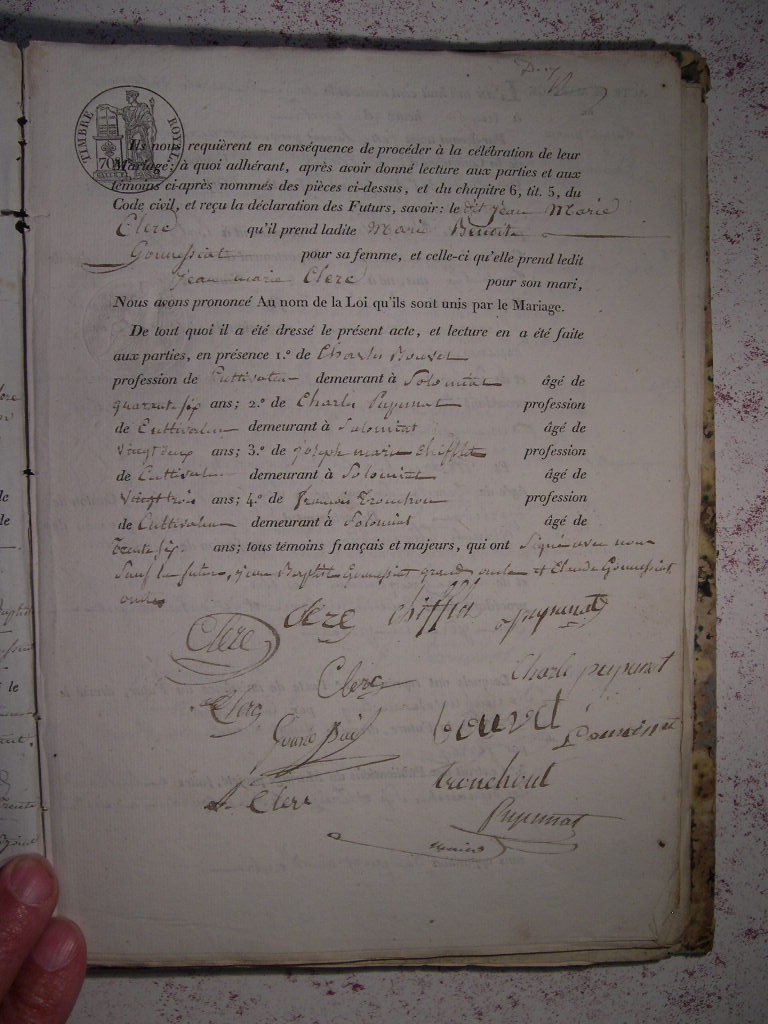 TIMBRE ROYAL
70
Ils nous requièrent en conséquence de procéder à la célébration de leur
Mariage; à quoi adhérant, après avoir donné lecture aux parties et aux
témoins ci-après nommés des pièces ci-dessus, et du chapitre 6, tit. 5, du
Code civil, et reçu la déclaration des Futurs, savoir: le dit jean Marie
Clerc qu'il prend ladite Marie Benoite
Gonnessiat pour sa femme, et celle-ci qu'elle prend ledit
jean marie Clerc pour son mari,
Nous avons prononcé Au nom de la Loi qu'ils sont unis par le Mariage.
De tout quoi il a été dressé le présent acte, et lecture en a été faite
aux parties, en présence 1.º de Charles Bouvet
profession de Cultivateur demeurant à Solomiat âgé de
quarante six ans; 2.º de Charles Puyunat profession
de Cultivateur demeurant à Solomiat âgé de
vingt deux ans; 3.º de joseph marie Chifflet profession
de Cultivateur demeurant à Solomiat âgé de
vingt trois ans; 4.º de françois Tronchon profession
de Cultivateur demeurant à Solomiat âgé de
trente six ans; tous témoins français et majeurs, qui ont Signé avec nous
Sauf la future, jean Baptiste Gonnessiat grand oncle et Claude Gonnessiat
oncle
Clerc
chifflet
puyunat
Clerc
Charle puyunat
Clerc
bouvet
tronchout
Clerc
Puyunat
maire